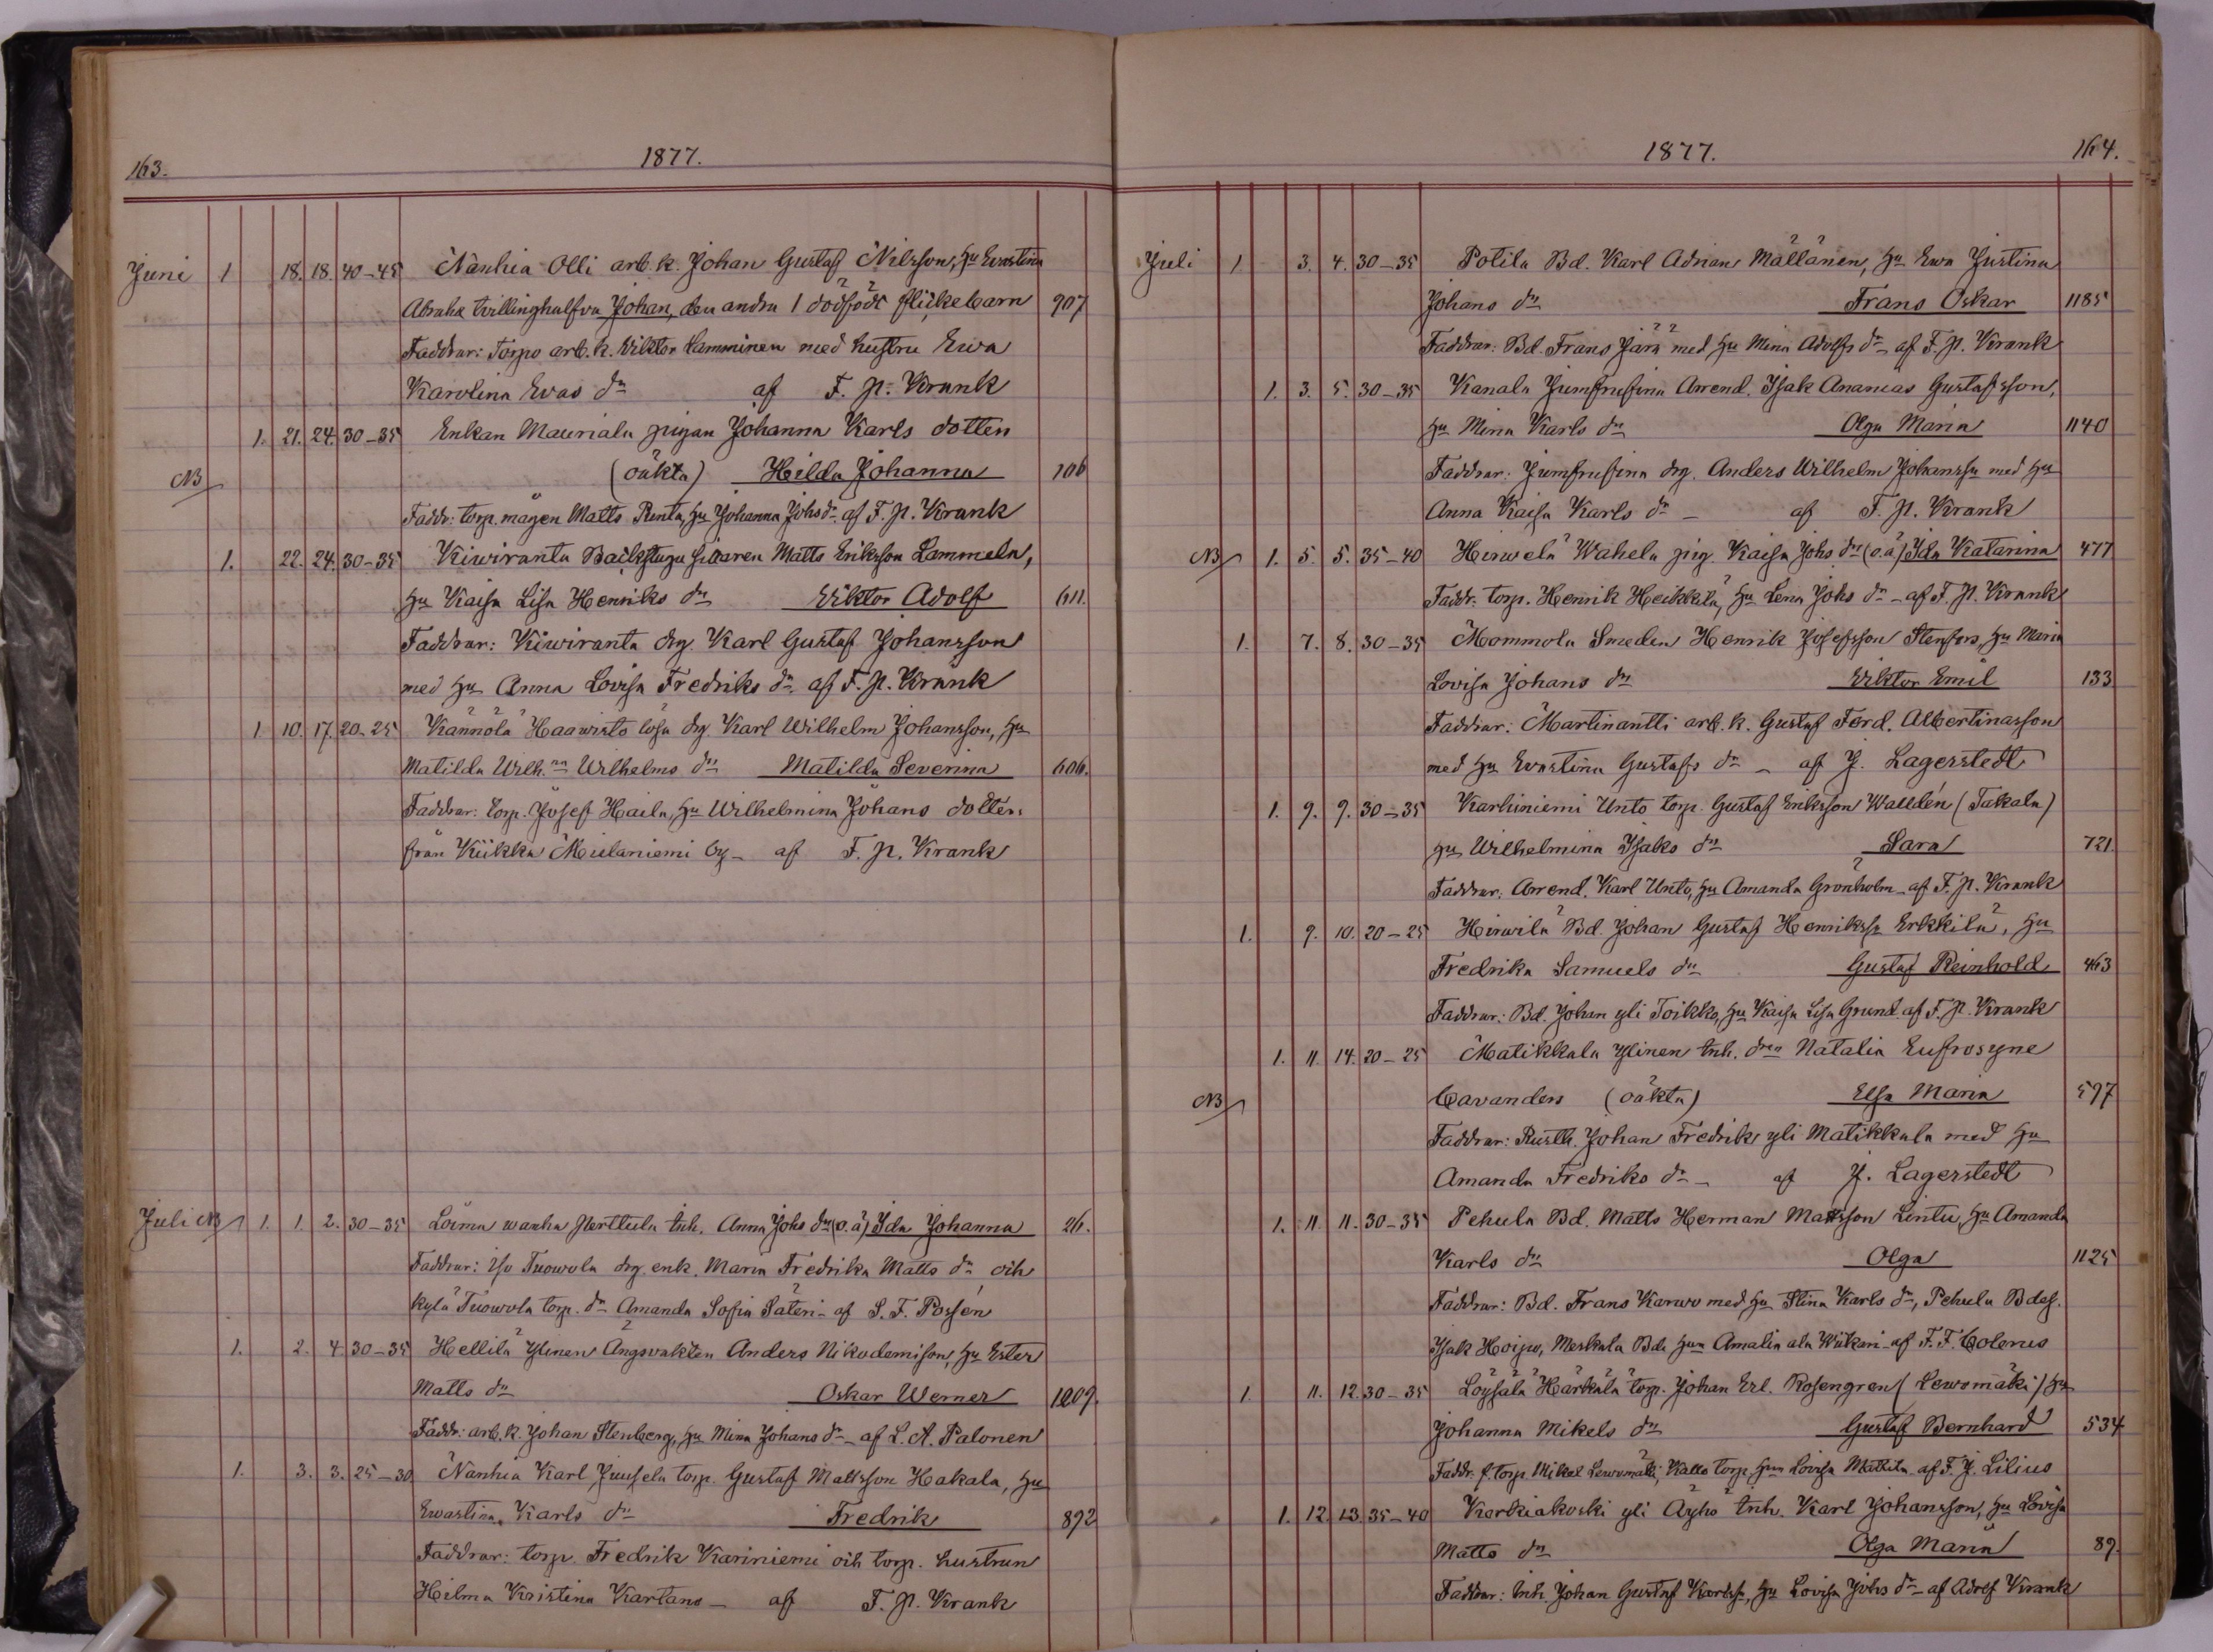 163.
1877.
Juni 1 18. 18. 40-45 Nanhia Olli arb. k. Johan Gustaf Nilsson, hu Evastina
Abrahs tvillinghalfva Johan, den andra 1 dödfödt flickebarn 907
Faddrar: Torpo arb. k. Viktor Lamminen med hustru Ewa
Karolina Evas dr af F. P. Krank
1. 21. 24. 30-35 Enkan Mauriala pigan Johanna Karls dotten
NB (oäkta) Hilda Johanna 106
Faddr: torp. mågen Matts Rinta, hu Johanna Johs dr af F. P. Krank
1. 22. 24. 30-35 Kiviranta Backstugu sittaren Matts Eriksson Lammela,
hu Kaisa Lisa Henriks dr Viktor Adolf 611.
Faddrar: Kiwiranta drg. Karl Gustaf Johansson
med hu Anna Lovisa Fredriks dr af F. P. Krank
1. 10. 17. 20-25 Kännölä Haawisto lösa drg Karl Wilhelm Johansson, hu
Matilda Wilh.na Wilhelms dr Matilda Severina 606.
Faddrar: torp. Josef Haila, hu Wilhelmina Johans dotter
från Kiikka Meilaniemi by - af F. P. Krank
Juli NB 1. 1. 2. 30-35 Loima wanha Perttula inh. Anna Johs dr (o.ä) Ida Johanna 26.
Faddrar: Iso Tuowola drg. enk. Maria Fredrika Matts dr och
kylä Tuowola torp. dr Amanda Sofia Säteri - af S. F. Posén
1. 2. 4. 30-35 Hellilä Ylinen Ängsvakten Anders Nikodemison, hu Ester
Matts dr Oskar Werner 1009.
Faddr: arb. k. Johan Stenberg, hu Mina Johans dr - af L. A. Palonen
1. 3. 3. 25-30 Nanhia Karl Juusela torp. Gustaf Mattsson Hakala, hu
Evastina Karls dr Fredrik 892
Faddrar: torp. Fredrik Kariniemi och torp. hustrun
Hilma Kristina Kartano - af F. P. Krank
1877.
164.
Juli 1 3. 4. 30-35 Potila Bd. Karl Adrian Mällänen, hu Ewa Justina
Johans dr Frans Oskar 1185
Faddrar: Bd. Frans Järä med hu Mina Adolfs dr - af F. P. Krank
1. 3. 5. 30-35 Kanala Jumfrusinn Arrend. Isak Ananias Gustafsson,
hu Mina Karls dr Olga Maria 1140
Faddrar: Jumfrusinn drg. Anders Wilhelm Johanssn med hu
Anna Kaisa Karls dr - af F. P. Krank
NB 1. 5. 5. 35-40 Hirwelä Wahela pig. Kaisa Johs dr (o.ä) Ida Katarina 477
Faddr. torp. Henrik Heikkilä, hu Lena Johs dr - af F. P. Krank
1. 7. 8. 30-35 Mommola Smeden Henrik Josefsson Stenfors, hu Maria
Lovisa Johans dr Viktor Emil 133
Faddrar: Martinantti arb. k. Gustaf Ferd. Albertinasson
med hu Evastina Gustafs dr - af J. Lagerstedt
1. 9. 9. 30-35 Karhiniemi Unto torp. Gustaf Eriksson Wallén (Takala)
hu Wilhelmina Isaks dr Sara 721.
Faddrar: Arrend. Karl Unto, hu Amanda Grönholm - af F. P. Krank
1. 9. 10. 20-25 Hirwilä Bd. Johan Gustaf Henrikssn Erkkilä, hu
Fredrika Samuels dr Gustaf Reinhold 463
Faddrar: Bd. Johan yli Toikko, hu Kaisa Lisa Grund. af F. P. Krank
1. 11. 14. 20-25 Matikkala Ylinen inh. dren Natalia Eufrosyne
NB Cavanders (oäkta) Elsa Maria 597
Faddrar: Rusth. Johan Fredriks yli Matikkala med hu
Amanda Fredriks dr - af J. Lagerstedt
1. 11. 11. 30-35 Pehula Bd. Matts Herman Mattsson Lintu, hu Amanda
Karls dr Olga 1125
Faddrar: Bd. Frans Karwo med hu Stina Karls dr, Pehula Bdes.
Isak Hoipo, Meskala Bde hun Amalia ala Wiikari - af F. F. Colerus
1. 11. 12. 30-35 Loysälä Härkälä torp. Johan Erl. Rosengren (Lewomäki) hu
Johanna Mikels dr Gustaf Bernhard 534
Faddr. f. torp. Mikel Lewomäki, Kallo torp. hun Lovisa Mattila af F. J. Lilius
1. 12. 13. 35-40 Korkiakoski yli Äyhö inh. Karl Johansson, hu Lovisa
Matts dr Olga Maria 89.
Faddrar: Inh. Johan Gustaf Karlssn, hu Lovisa Johs dr - af Adolf Krank